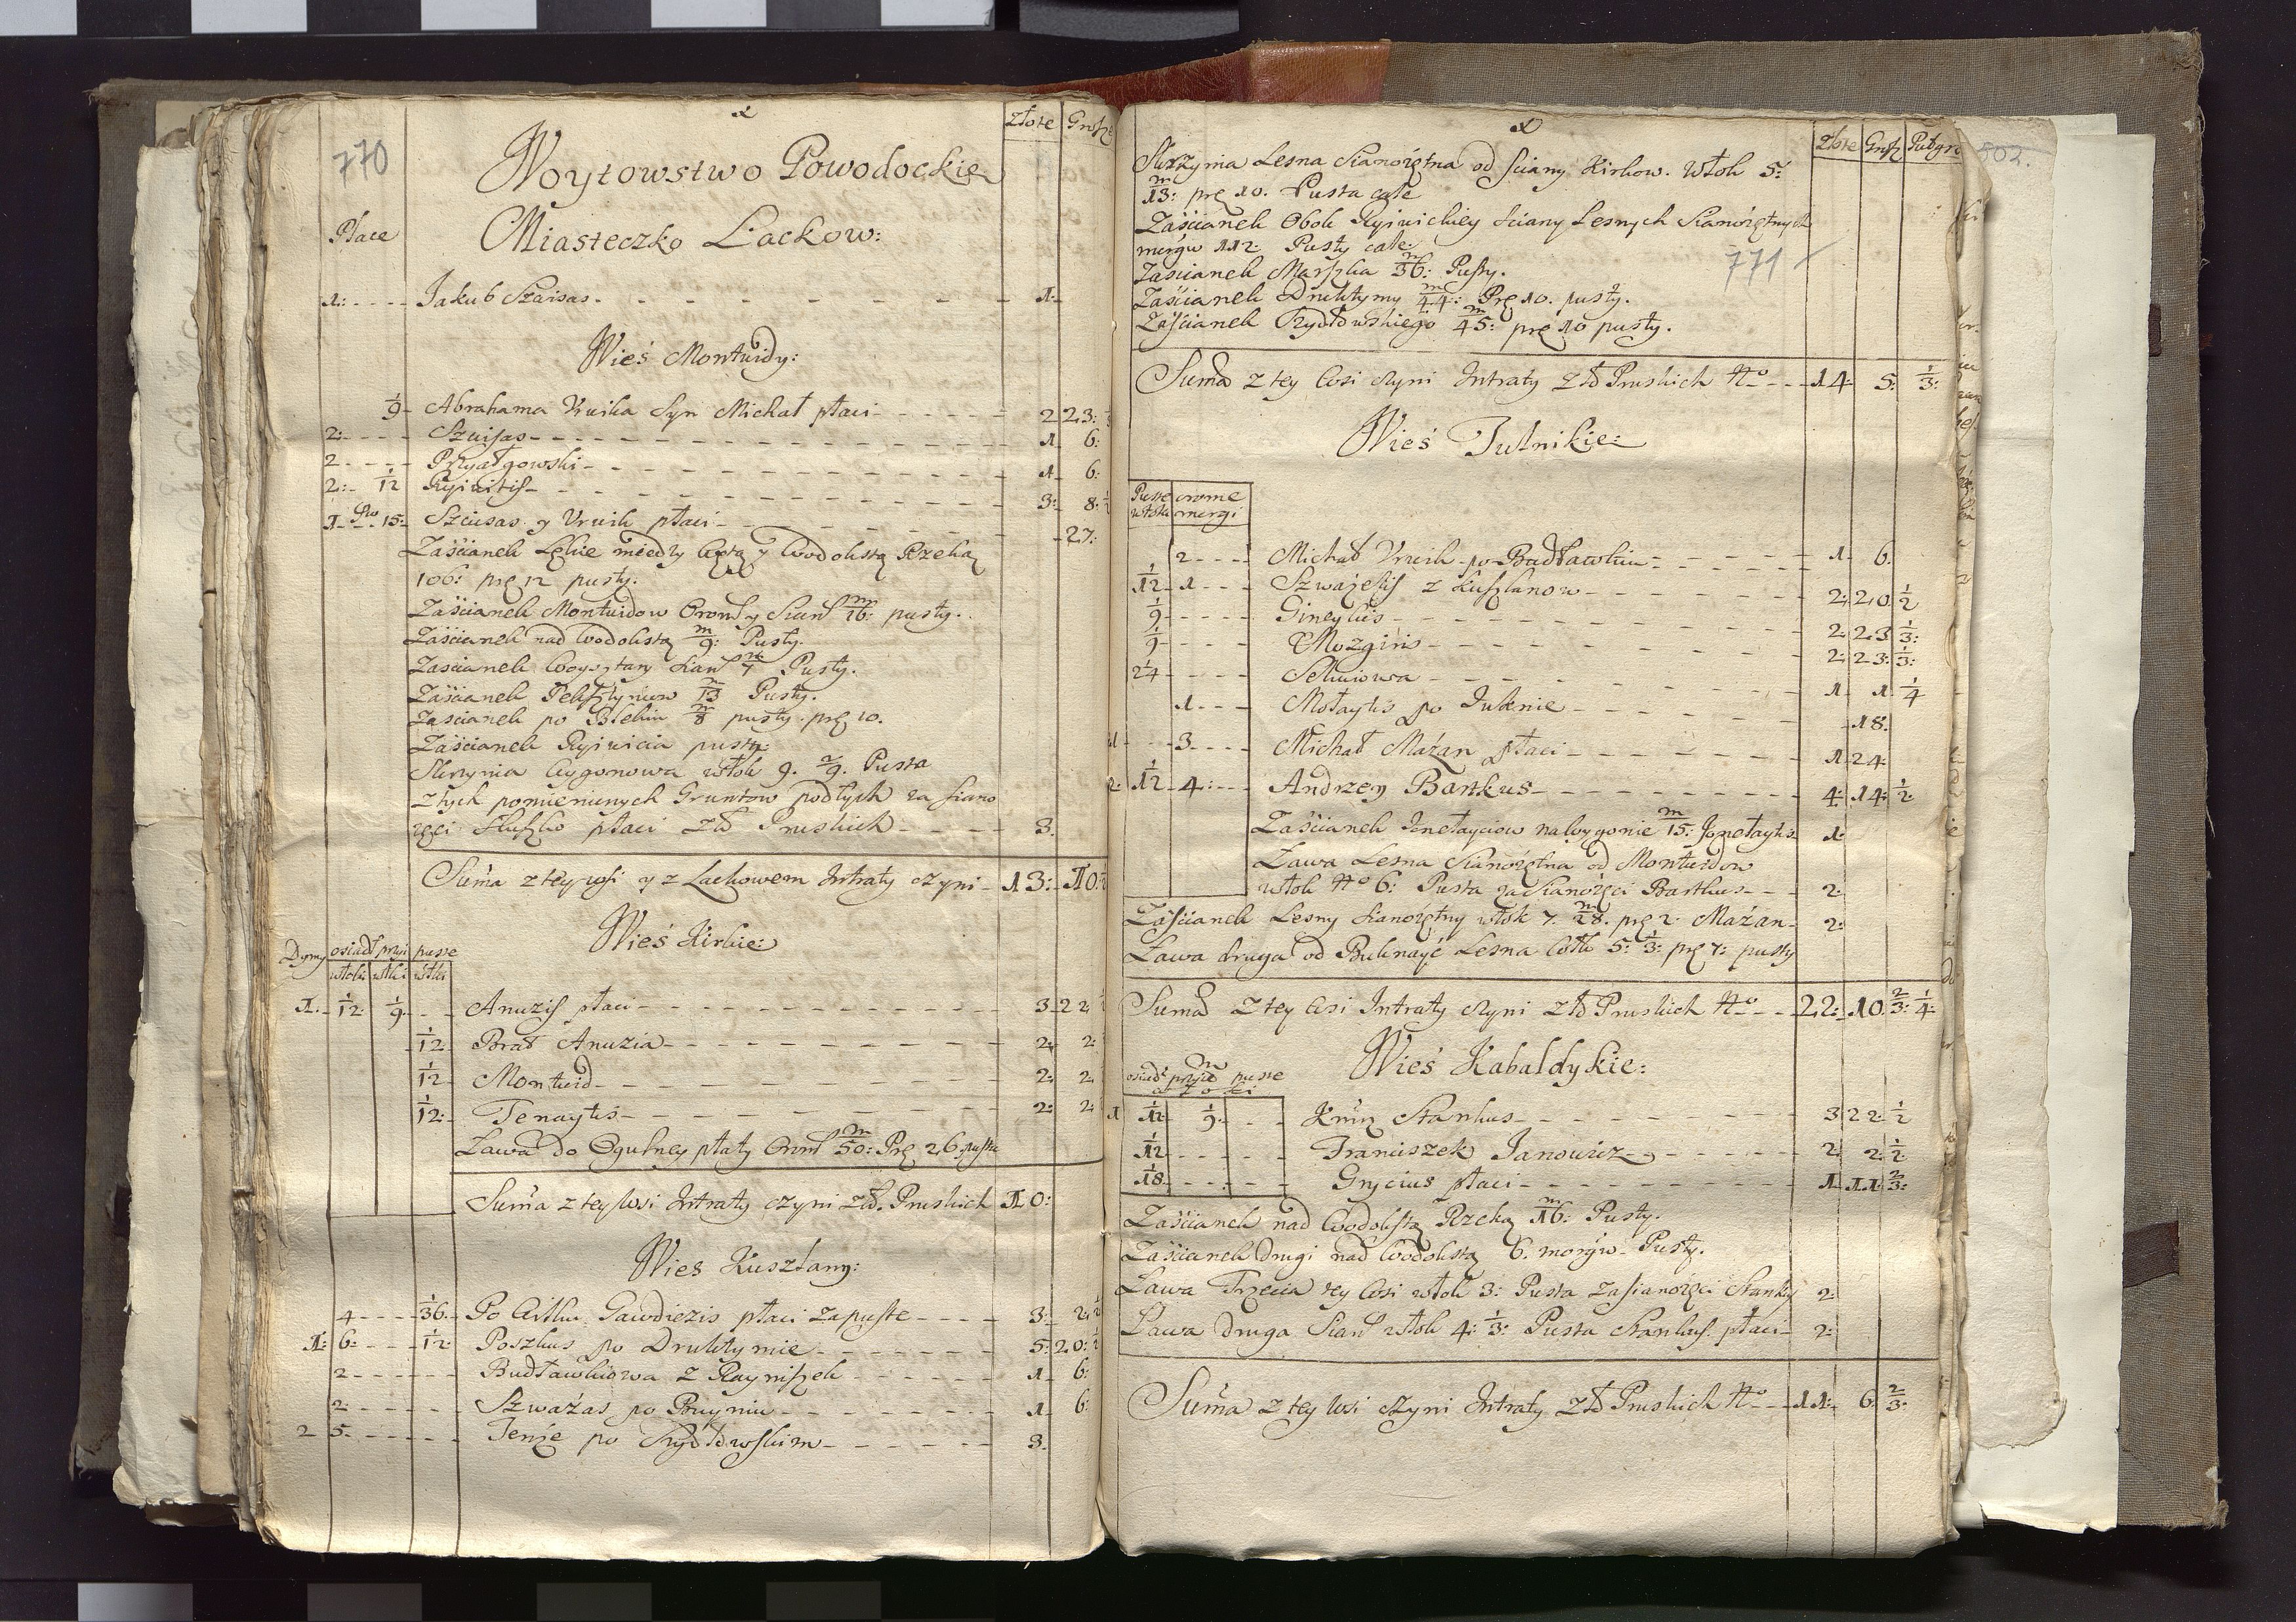 770
Woytowstwo Powodockie
Złote Grosze
Place
Miasteczko Lackow:
1: Jakub Szaisas 1
Wieś Montwidy:
1/9 Abrahama Uruika Syn Michał płaci 2 23:
2: Szuisas 1 6:
2 Przyałgowski 1 6:
2: 1/12 3: 8: 1/2
1 15: Szuisas y Uruik płaci 27:
Zaścianek Lękie miedzy y Wodoksta Rzeką
106: prę 12 pusty.
Zaścianek Montwidow Orom y Sian m/16: pusty.
Zaścianek nad Wodoksta m/9: Pusty
Zascianek Sian m/7 Pusty.
Zaścianek m/13 Pusty.
Zascianek po m/8 pusty. prę 10.
Zaścianek pusty:
Skrzynia Wygonowa włok 9. 2/9. Pusta
z tych pomienionych Gruntow podłych za siano
zęci płaci zł Pruskich 3.
Suma z tey wsi y z Lackowem Intraty czyni 13: 10:
Wieś Kirkie:
Dymy osiadł przyi puste
włoki włoki włoki
1. 1/12: 1/9: Anuzis płaci 3 22
1/12: Brat Anuzia 2: 2:
1/12 Montwid 2: 2:
1/12: Tenaytis 2: 2:
Ława do Ogulney płaty Orom m/50: Prę 26 pusta
Suma z tey Wsi Intraty czyni zł. Pruskich 10:
Wies Kuszłany:
4 1/36 Po Gawdiezis płaci za puste 3: 2: 1/2
1: 6: 1/12: Poszkus po Druktymie 5: 20: 1/2
2 Budławkiowa z Rayniszek 1 6:
2: Szważas po Bruyniu 1 6:
2 5: Tenże po Szydłowskim 3.
502.
Złote Grosz Pułgr
Skrzynia Lesna Sianożętna od sciany Kirkow. Włok 5:
m/13: prę 10. Pusta cale
Zaścianek Obok sciany Lesnych Sianożętnych
morgw 112: Pusty cale:
Zascianek Marszka m/36: Pusty.
771
Zaścianek Druktymy m/44: Prę 10. pusty.
Zaścianek Szydłowskiego m/45: prę 10 pusty.
Suma z tey Wsi czyni Intraty Zł Pruskich No 14: 5: 1/3:
Wieś Jutnikie:
Puste orome
włoki morgi
2 Michał Uruik po Budławkiu 1 6
1/12 1 Szważelis z Kuszlanow 2: 20 1/2
1/9 Gineykis 2: 23 1/3:
1/9 Mozgiris 2: 23: 1/3:
24 Selmiowa 1 1 1/4
1 Motaytis po Juknie 18:
1 3 Michał Mażan płaci 1 24:
2: 1/12 4: Andrzey Bartkus 4: 14: 1/2
Zaścianek Jnetayciow na wygonie m/15: Jonetaytis 1:
Ława Lesna Sianożętna od Montwidow
włok No 6: Pusta za Sianożęci Bartkus 2:
Zaścianek Lesny Sianożętny włok 7. m/28. prę 2. Mażan 2:
Ława druga od Buknayć Lesna Włk 5: 1/3: prę 7: pusty
Suma z tey Wsi Intraty czyni Zł Pruskich No 22: 10 2/3: 1/4:
Wieś Kabaldykie:
osiadł przyi puste
włoki
1 1/12 1/9: Stankus 3 22 1/2
1/12 Franciszek Janowicz 2: 2: 1/2
1/18 Grycius płaci 1 11: 2/3:
Zaścianek nad Wodokstą Rzeką m/16: Pusty.
Zaścianek drugi nad Wodokstą 6. morgw Pusty.
Ława Trzecia tey Wsi włok 3: Pusta za sianożęci Stankus 2:
Ława druga Sian włok 4: 1/3: Pusta Stankus płaci 2:
Suma z tey Wsi czyni Intraty Zł Pruskich No 11: 6: 2/3: